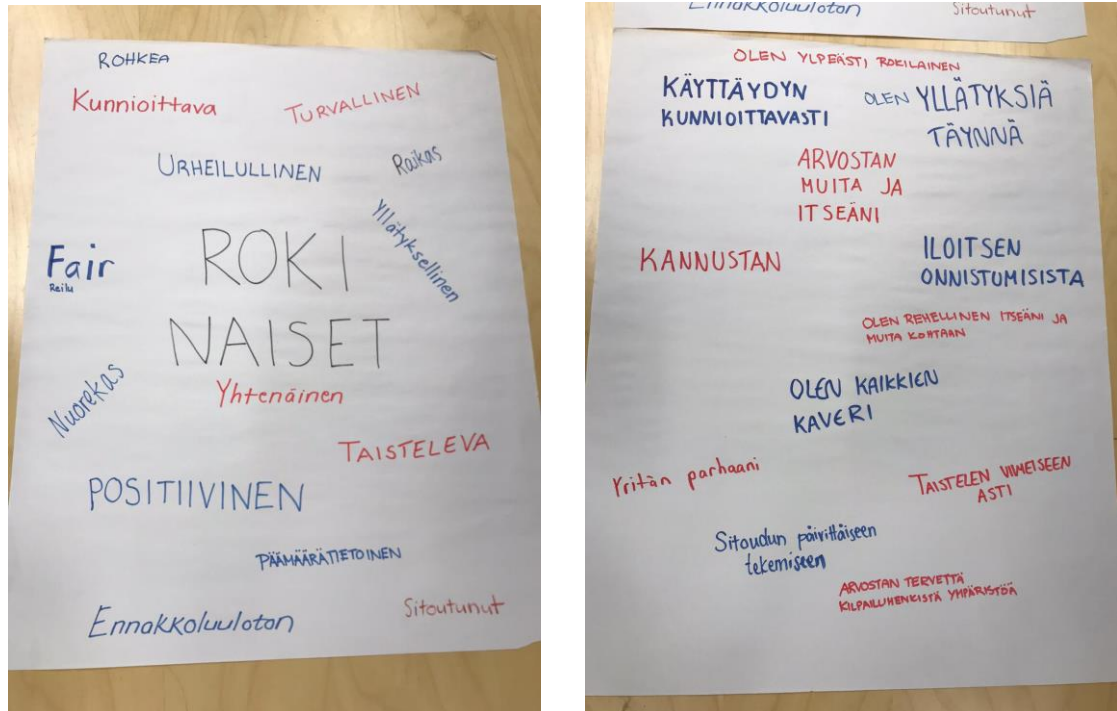 ROHKEA
Kunnioittava
TURVALLINEN
URHEILULLINEN
Raikas
Yllätyksellinen
Fair
Reilu
ROKI
NAISET
Yhtenäinen
Nuorekas
TAISTELEVA
POSITIIVINEN
PÄÄMÄÄRÄTIETOINEN
Ennakkoluuloton
Sitoutunut
Ennakkoluuloton
Sitoutunut
OLEN YLPEÄSTI ROKILAINEN
KÄYTTÄYDYN
KUNNIOITTAVASTI
OLEN YLLÄTYKSIÄ
TÄYNNÄ
ARVOSTAN
MUITA JA
ITSEÄNI
KANNUSTAN
ILOITSEN
ONNISTUMISISTA
OLEN REHELLINEN ITSEÄNI JA
MUITA KOHTAAN
OLEN KAIKKIEN
KAVERI
Yritän parhaani
TAISTELEN VIIMEISEEN
ASTI
Sitoudun päivittäiseen
tekemiseen
ARVOSTAN TERVETTÄ
KILPAILUHENKISTÄ YMPÄRISTÖÄ